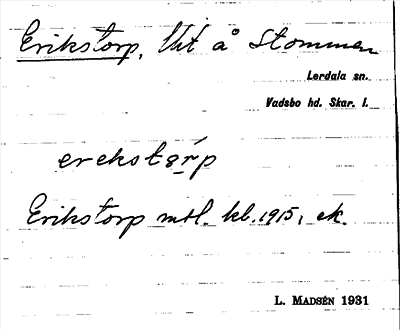 Erikstorp, Utä å Stommen
Lerdala sn.
Vadsbo hd. Skar. l.
erekstarp
Erikstorp mtl. kb. 1915, ek.
L. MADSÉN 1931